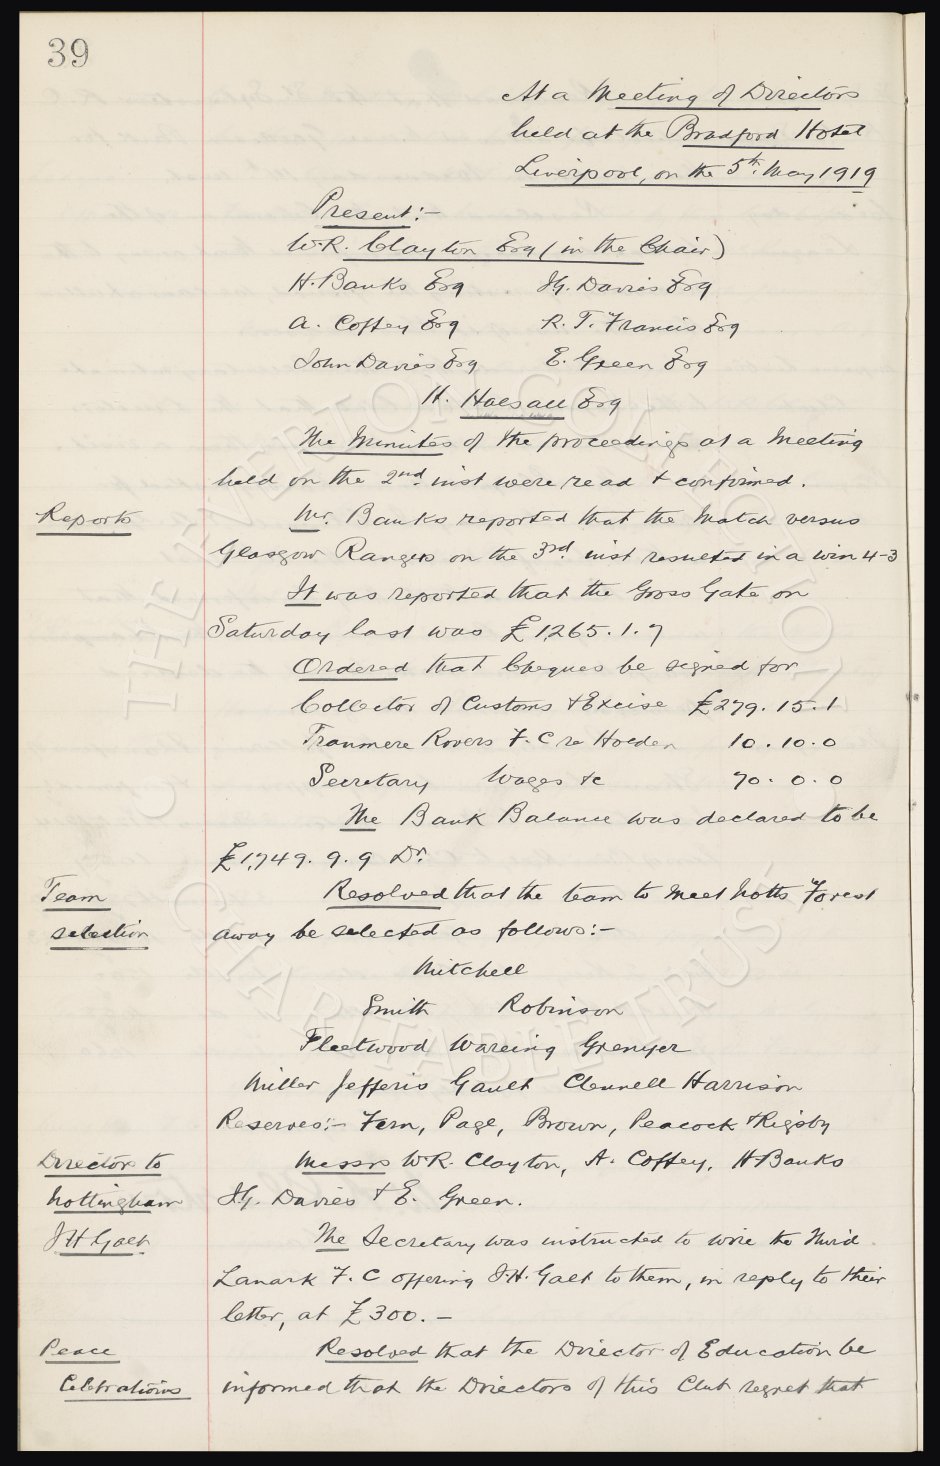 39
At a Meeting of Directors
held at the Bradford Hotel
Liverpool, on the 5th. May 1919
Present:-
W.R. Clayton Esq (in the Chair)
H. Banks Esq J.G. Davies Esq
A. Coffey Esq R. T. Francis Esq
John Davies Esq E. Green Esq
H. Halsall Esq
The Minutes of the proceedings at a Meeting
held on the 2nd. inst were read & confirmed.
Reports
Mr. Banks reported that the Match versus
Glasgow Rangers on the 3rd. inst resulted in a win 4-3
It was reported that the Gross Gate on
Saturday last was £1,265.1.7
Ordered that Cheques be signed for
Collector of Customs & Excise £279.15.1
Tranmere Rovers F.C re Holden 10.10.0
Secretary Wages &c 70.0.0
The Bank Balance was declared to be
£1,749.9.9 Dr.
Team
selection
Resolved that the team to meet Notts Forest
away be selected as follows:-
Mitchell
Smith Robinson
Fleetwood Wareing Grenyer
Miller Jefferis Gault Clennell Harrison
Reserves:- Fern, Page, Brown, Peacock & Rigsby
Directors to
Nottingham
Messrs W.R. Clayton, A. Coffey, H Banks
J.G. Davies & E. Green.
J H Galt
The Secretary was instructed to wire the Third
Lanark F.C offering J.H. Galt to them, in reply to their
letter, at £300.-
Peace
Celebrations
Resolved that the Director of Education be
informed that the Directors of this Club regret that
THE EVERTON COLLECTION
CHARITABLE TRUST